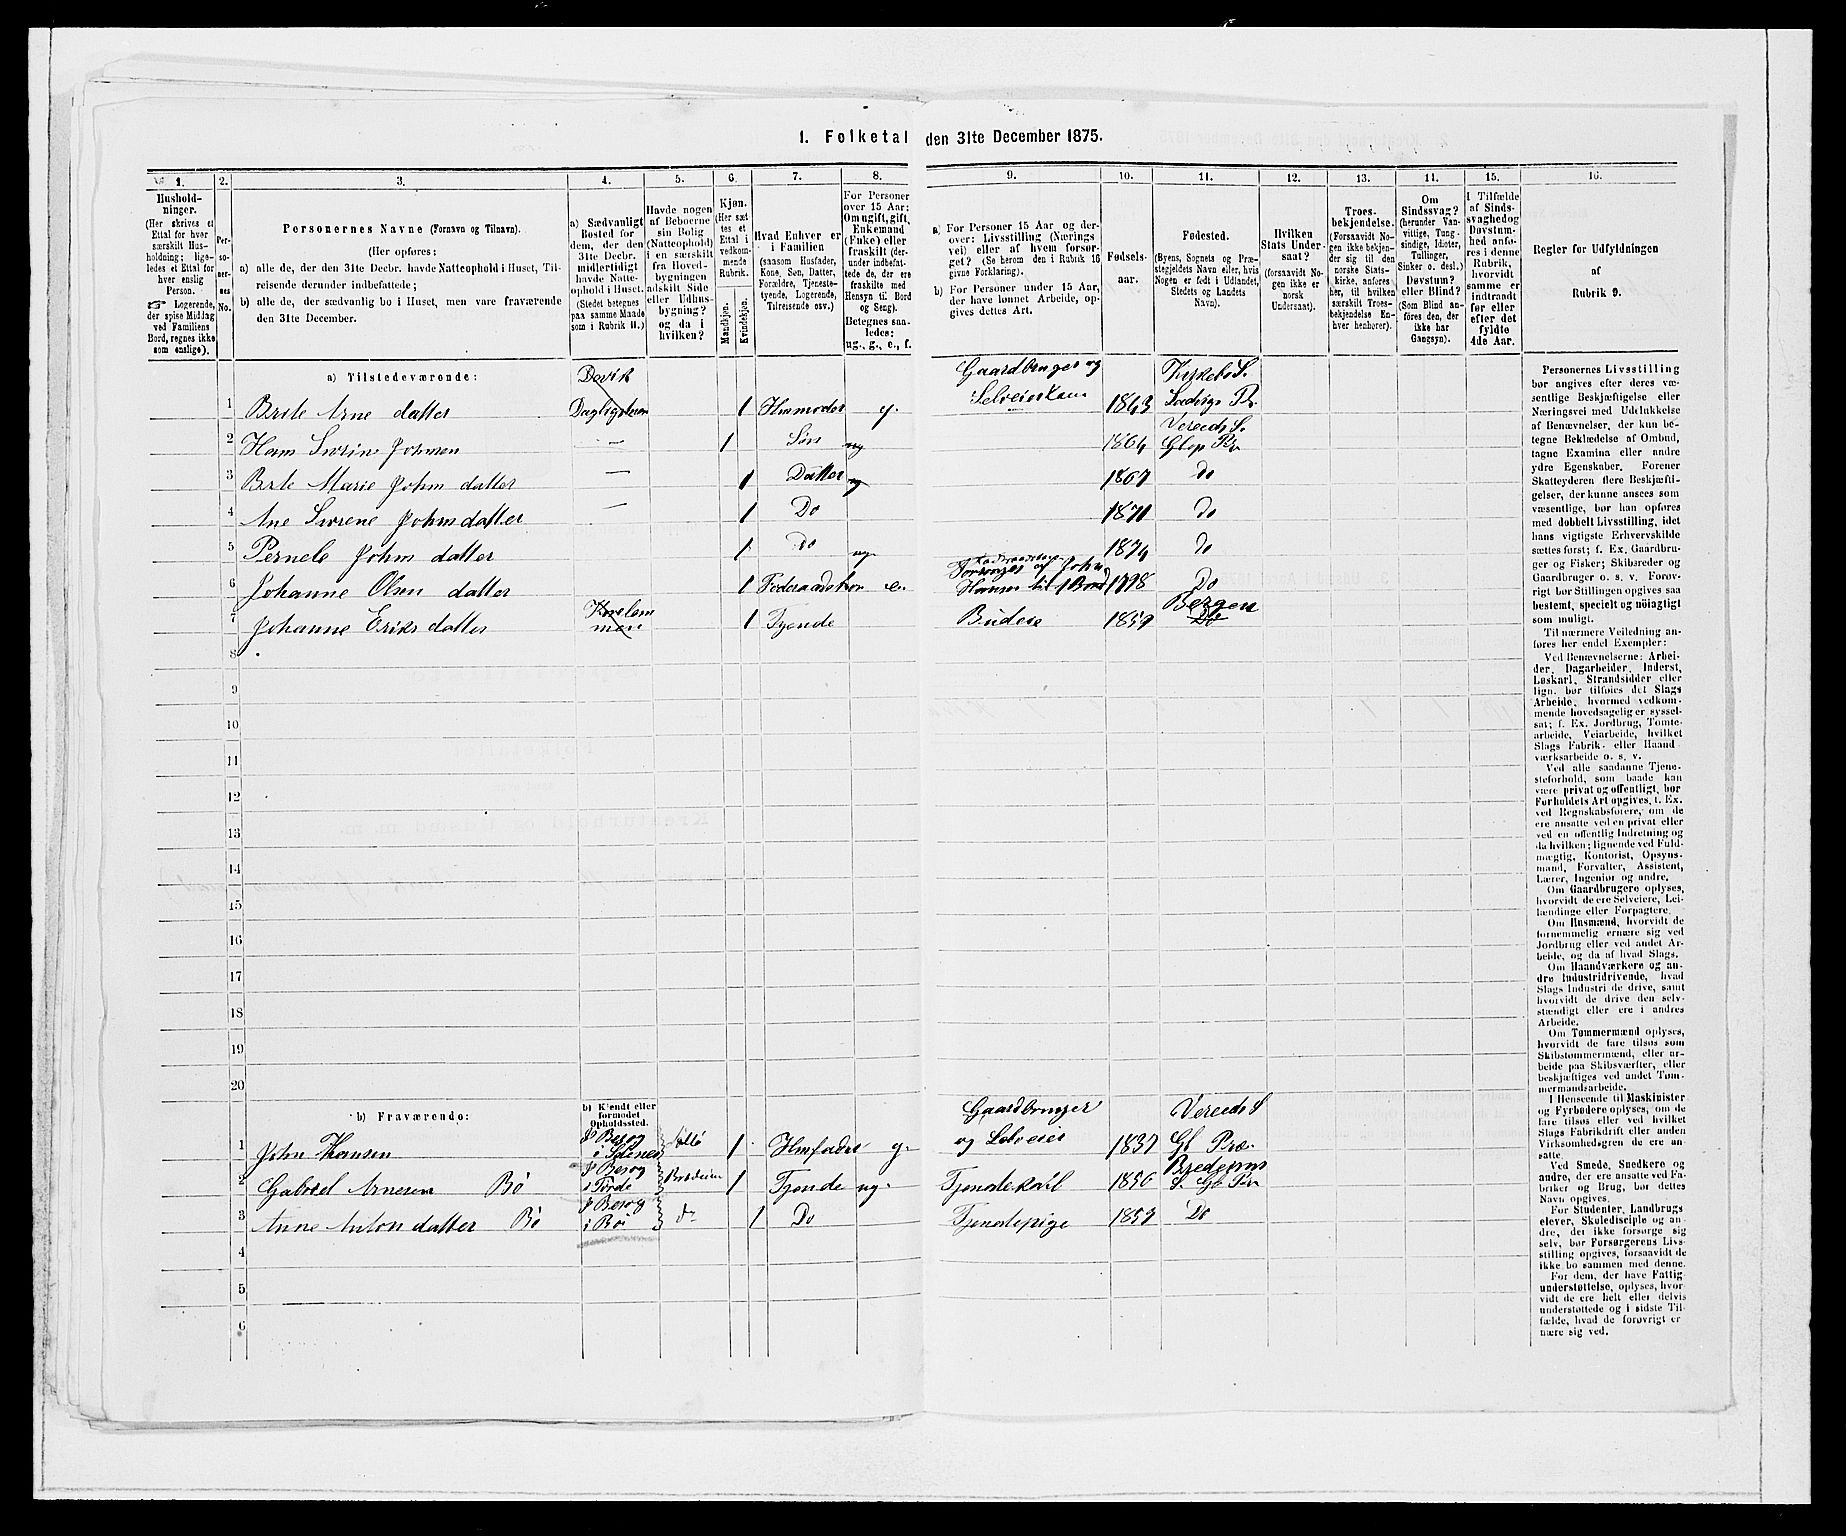 1. Folketal den 31te December 1875.
1.
2.
3.
4.
5.
6.
7.
8.
9.
10.
11.
12.
13.
14.
15.
16.
Hushold-
ninger.
(Her skrives et
Ettal for hver
særskilt Hus-
holdning; lige-
ledes et Ettal for
hver enslig
Person.
☞ Logerende,
der spise Middag
ved Familiens
Bord, regnes ikke
som enslige).
Per-
so-
ner-
nes
No.
Personernes Navne (Fornavn og Tilnavn).
(Her opføres:
a) alle de, der den 31te Decbr. havde Natteophold i Huset, Til-
reisende derunder indbefattede;
b) alle de, der sædvanlig bo i Huset, men vare fraværende
den 31te December.
a) Sædvanligt
Bosted for
dem, der den
31te Decbr.
midlertidigt
havde Natte-
ophold i Huset.
(Stedet betegnes
paa samme Maade
som i Rubrik 11.)
Havde nogen
af Beboerne
sin Bolig
(Natteophold)
i en særskilt
fra Hoved-
bygningen
adskilt Side
eller Udhus-
bygning?
og da i
hvilken?
Kjøn.
(Her sæt-
tes et
Ettal i
vedkom-
mende
Rubrik.
Mandkjøn.
Kvindekjøn.
Hvad Enhver er
i Familien
(saasom Husfader,
Kone, Søn, Datter,
Forældre, Tjeneste-
tyende, Logerende,
Tilreisende osv.)
For Personer
over 15 Aar:
Om ugift, gift,
Enkemand
(Enke) eller
fraskilt (der-
under indbefat-
tede de, der ere
fraskilte med
Hensyn til Bord
og Seng).
Betegnes saa-
ledes:
ug., g., e., f.
a) For Personer 15 Aar og der-
over: Livsstilling (Nærings
vei) eller af hvem forsør-
get? (Se herom den i Rubrik 16
givne Forklaring).
b) For Personer under 15 Aar,
der have lønnet Arbeide, op-
gives dettes Art.
Fødsels-
aar.
Fødested.
(Byens, Sognets og Præ-
stegjeldets Navn eller, hvis
Nogen er født i Udlandet,
Stedets og Landets
Navn).
Hvilken
Stats Under-
saat?
(forsaavidt No-
gen ikke er
norsk
Undersaat).
Troes-
bekjendelse.
(Forsaavidt No-
gen ikke bekjen-
der sig til den
norske Stats-
kirke, anføres
her, til hvilken
særskilt Troes-
bekjendelse En-
hver henhører).
Om
Sindssvag?
(herunder Van-
vittige, Tung-
sindige, Idioter,
Tullinger,
Sinker o. desl.)
Døvstum?
eller Blind?
(Som Blind an-
føres den, der
ikke har
Gangsyn).
I Tilfælde
af Sinds-
svaghed og
Døvstum-
hed anfø-
res i denne
Rubrik,
hvorvidt
samme er
indtraadt
før eller
efter det
fyldte
4de Aar.
Regler for Udfyldningen
af
Rubrik 9.
a) Tilstedeværende:
1 Brite Arne datter 1 Husmoder g. Gaardbruger og 1843
2 Hans 1 Søn ug 1864
3 Brite Marie Johns datter — 1 Datter ug 1867 Do
4 Ane Johnsdatter — 1 Do 1871 Do
5 Pernele Johns datter 1 Do ug. 1874 Do
6 Johanne Olsen datter 1 Føderaadskon e. 1798 Do
7 Johanne Eriks datter 1 Tyende Budeie 1859 Bergen
8
9
10
11
12
13
14
15
16
17
18
19
20
b) Fraværende:
b) Kjendt eller
formodet
Opholdssted.
1 John Hansen 1 Husfader g. Gaardbruger og Selveier 1837
2 Gabriel Arnesen Bø 1 Tjende ug. Tjenestekarl 1856
3 Anne Anton datter Bø 1 Do Tjenestepige 1859 Do
4
5
6
Personernes Livsstilling
bør angives efter deres væ-
sentlige Beskjæftigelse eller
Næringsvei med Udelukkelse
af Benævnelser, der kun be-
tegne Beklædelse af Ombud,
tagne Examina eller andre
ydre Egenskaber. Forener
Skatteyderen flere Beskjæfti-
gelser, der kunne ansees som
væsentlige, bør han opføres
med dobbelt Livsstilling, idet
hans vigtigste Erhvervskilde
sættes først; f. Ex. Gaardbru-
ger og Fisker; Skibsreder og
Gaardbruger o. s. v. Forøv-
rigt bør Stillingen opgives saa
bestemt, specielt og nøiagtigt
som muligt.
Til nærmere Veiledning an-
føres her endel Exempler:
Ved Benævnelserne: Arbei-
der, Dagarbeider, Inderst,
Løskarl, Strandsidder eller
lign. bør tilføies det Slags
Arbeide, hvormed vedkom-
mende hovedsagelig er syssel-
sat; f. Ex. Jordbrug, Tomte-
arbeide, Veiarbeide, hvilket
Slags Fabrik- eller Haand-
værksarbeide o. s. v.
Ved alle saadanne Tjene-
steforhold, som baade kan
være privat og offentligt, bør
Forholdets Art opgives, t. Ex.
ved Regnskabsførere, om de
ere ansatte ved en privat eller
ved en offentlig Indretning og
da hvilken; lignende ved Fuld-
mægtig, Kontorist, Opsyns-
mand, Forvalter, Assistent,
Lærer, Ingeniør og andre.
Om Gaardbrugere oplyses,
hvorvidt de ere Selveiere, Lei-
lændinge eller Forpagtere.
Om Husmænd, hvorvidt de
fornemmelig ernære sig ved
Jordbrug eller ved andet Ar-
beide, og da af hvad Slags.
Om Haandværkere og an-
dre Industridrivende, hvad
Slags Industri de drive, samt
hvorvidt de drive den selv-
stændigt eller ere i andres
Arbeide.
Om Tømmermænd oplyses,
hvorvidt de fare tilsøs som
Skibstømmermænd, eller ar-
beide paa Skibsværfter, eller
beskjæftiges ved andet Tøm-
mermandsarbeide.
I Henseende til Maskinister
og Fyrbødere oplyses, om de
fare tilsøs eller ved hvilket
Slags Fabrikdrift eller anden
Virksomhedsgren de ere an-
satte.
Ved Smede, Snedkere og
andre, der ere ansatte ved Fa-
briker og Brug, bør dettes
Navn opgives.
For Studenter, Landbrugs
elever, Skoledisciple og an-
dre, der ikke forsørge sig
selv, bør Forsørgerens Livs-
stilling opgives, forsaavidt de
ikke bo sammen med denne.
For dem, der have Fattig
understøttelse, oplyses, hvor-
vidt de ere helt eller delvis
understøttede og i sidste Til-
fælde, hvad de forøvrigt er
nære sig ved.